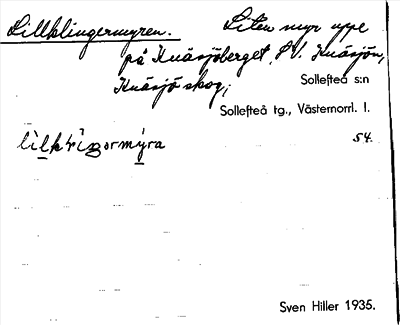 Lillklingermyren. Liten myr uppe
på Knäsjöberget, SV. Knäsjön,
Knäsjö skog;
Sollefteå s:n
Sollefteå tg., Västernorrl. l.
54.
Sven Hiller 1935.